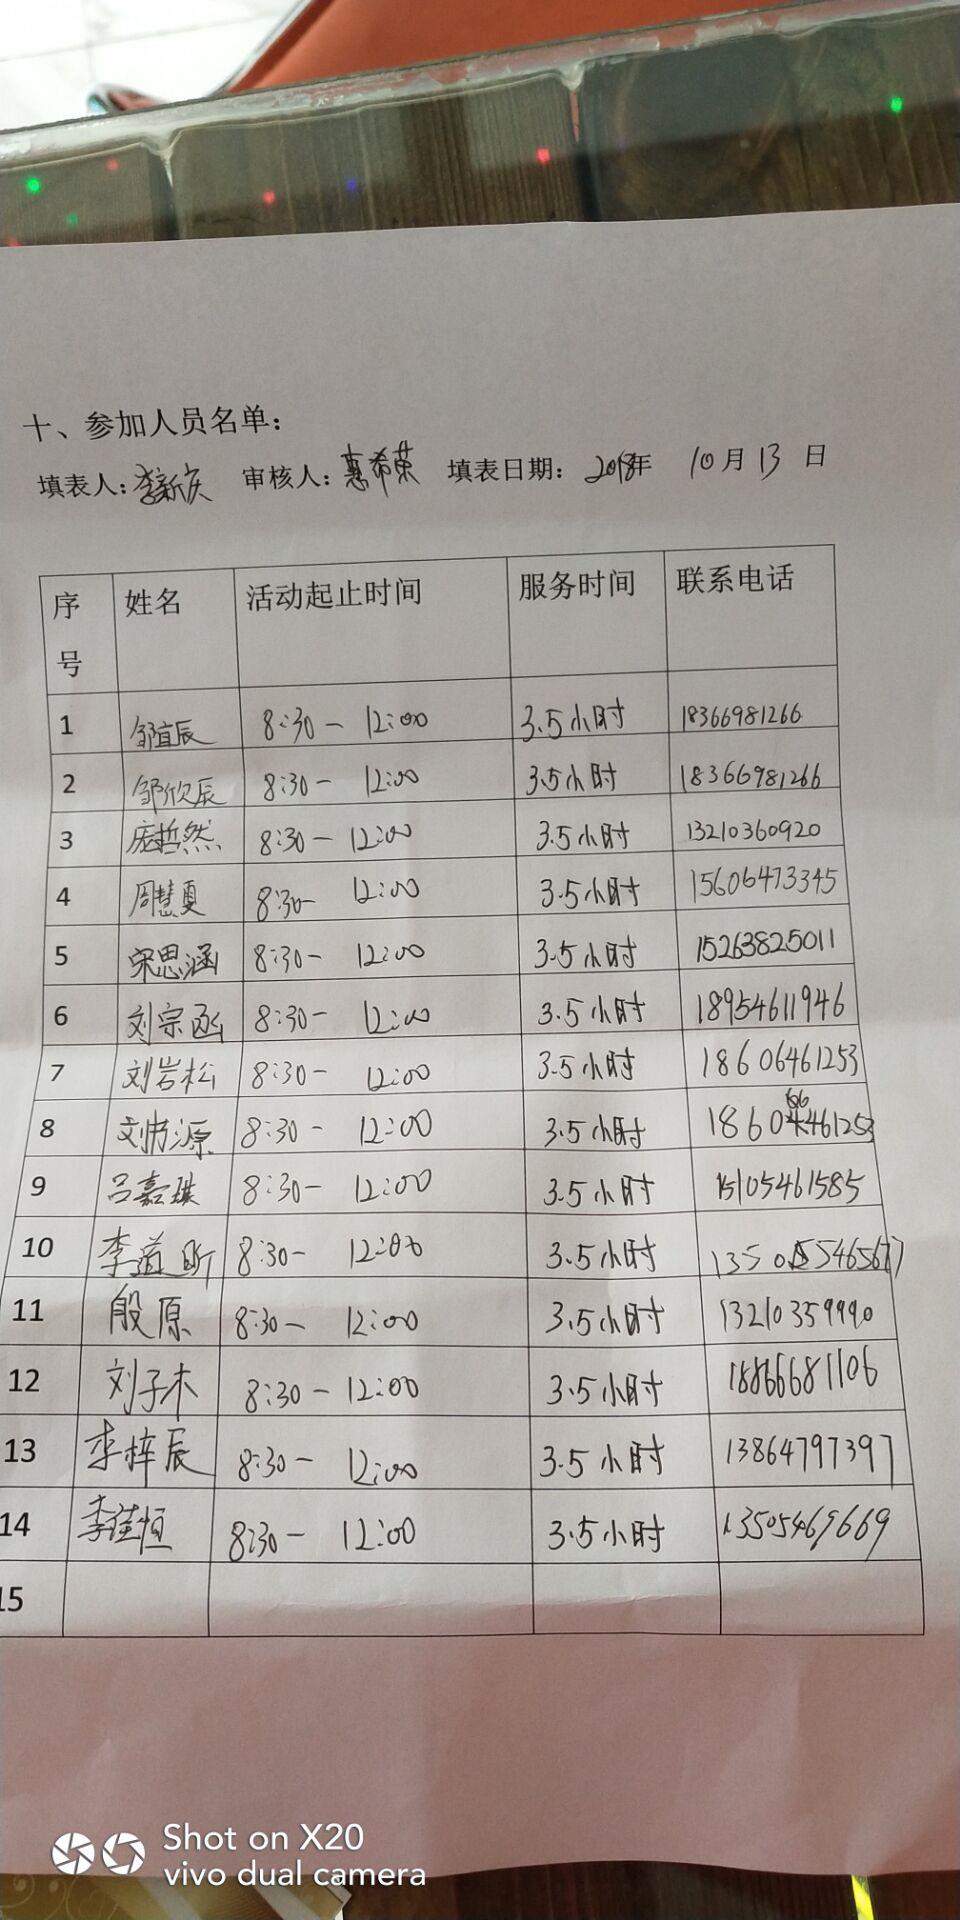 十、参加人员名单：
填表人：李新庆 审核人：惠希荣 填表日期： 2018年 10月13日
序号 姓名 活动起止时间 服务时间 联系电话
1 邹宜辰 8:30- 12:00 3.5小时 18366981266
2 邹欣辰 8:30- 12:00 3.5小时 18366981266
3 庞哲然 8:30- 12:00 3.5小时 13210360920
4 周慧夏 8:30- 12:00 3.5小时 15606473345
5 宋思涵 8:30- 12:00 3.5小时 15263825011
6 刘宗函 8:30- 12:00 3.5小时 18954611946
7 刘岩松 8:30- 12:00 3.5小时 18606461253
8 刘书源 8:30- 12:00 3.5小时
9 吕嘉琪 8:30- 12:00 3.5小时 15105461585
10 李道昕 8:30- 12:00 3.5小时
11 殷原 8:30- 12:00 3.5小时 13210359990
12 刘子木 8:30-12:00 3.5小时 18866681106
13 李梓辰 8:30- 12:00 3.5小时 13864797397
14 李佳恒 8:30- 12:00 3.5小时 13505469669
15
Shot on X20
vivo dual camera